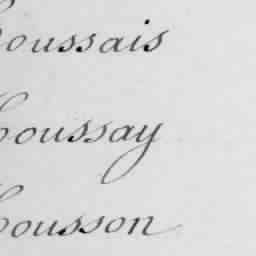 Coussais
Coussay
Cousson